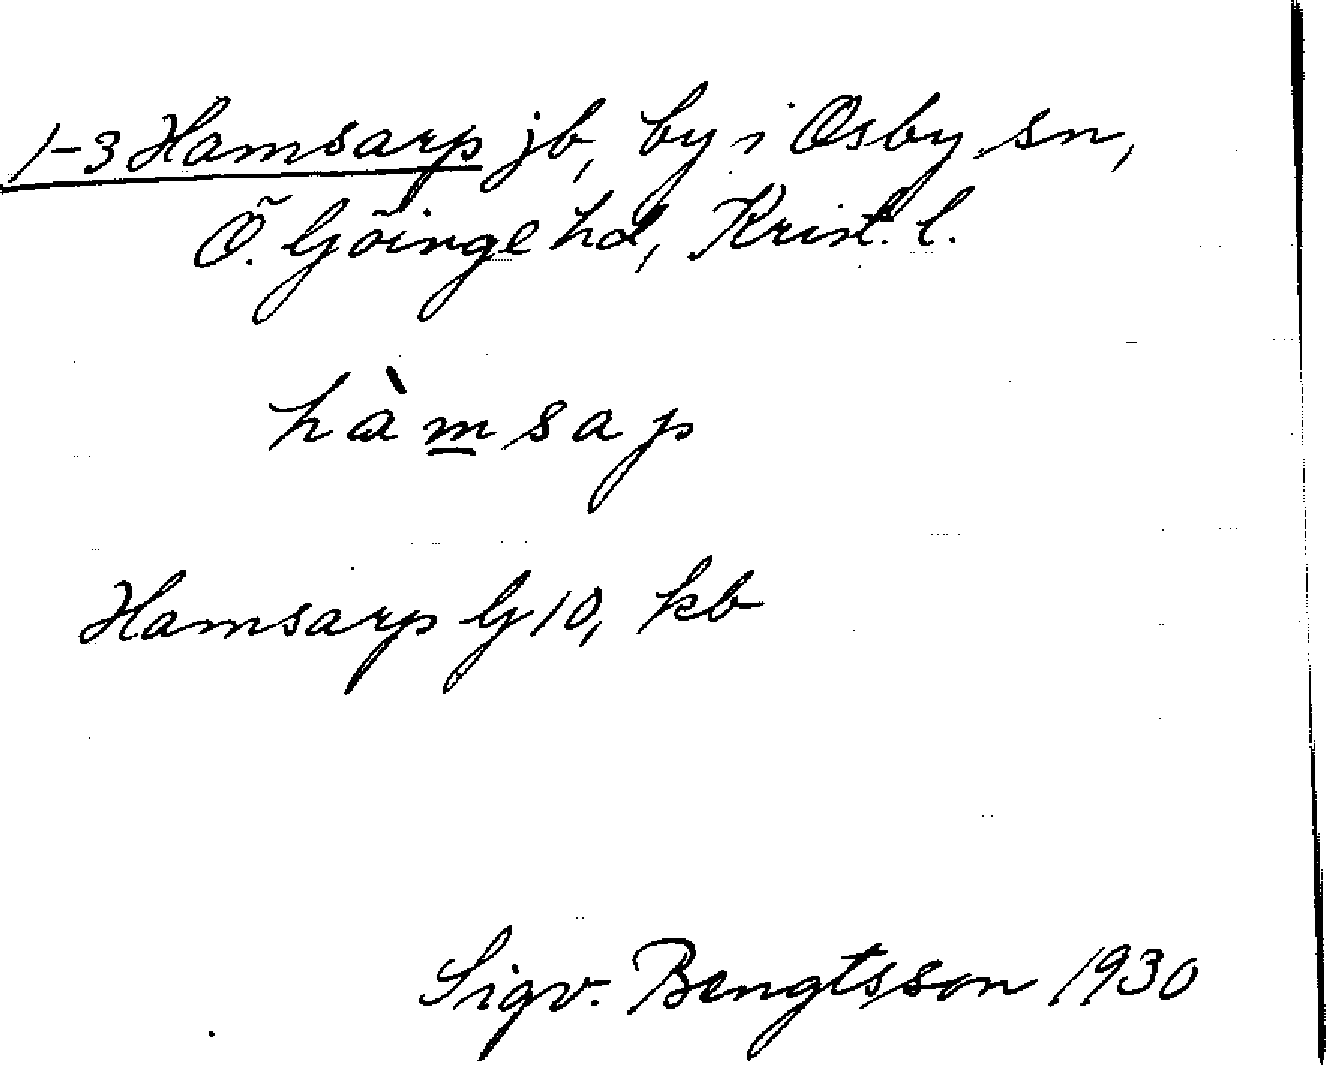 1-3 Hamsarp jb, by i Osby sn,
Ö. Göinge hd, Krist. l.
hàmsap
Hamsarp G 10, kb
Sigv. Bengtsson 1930